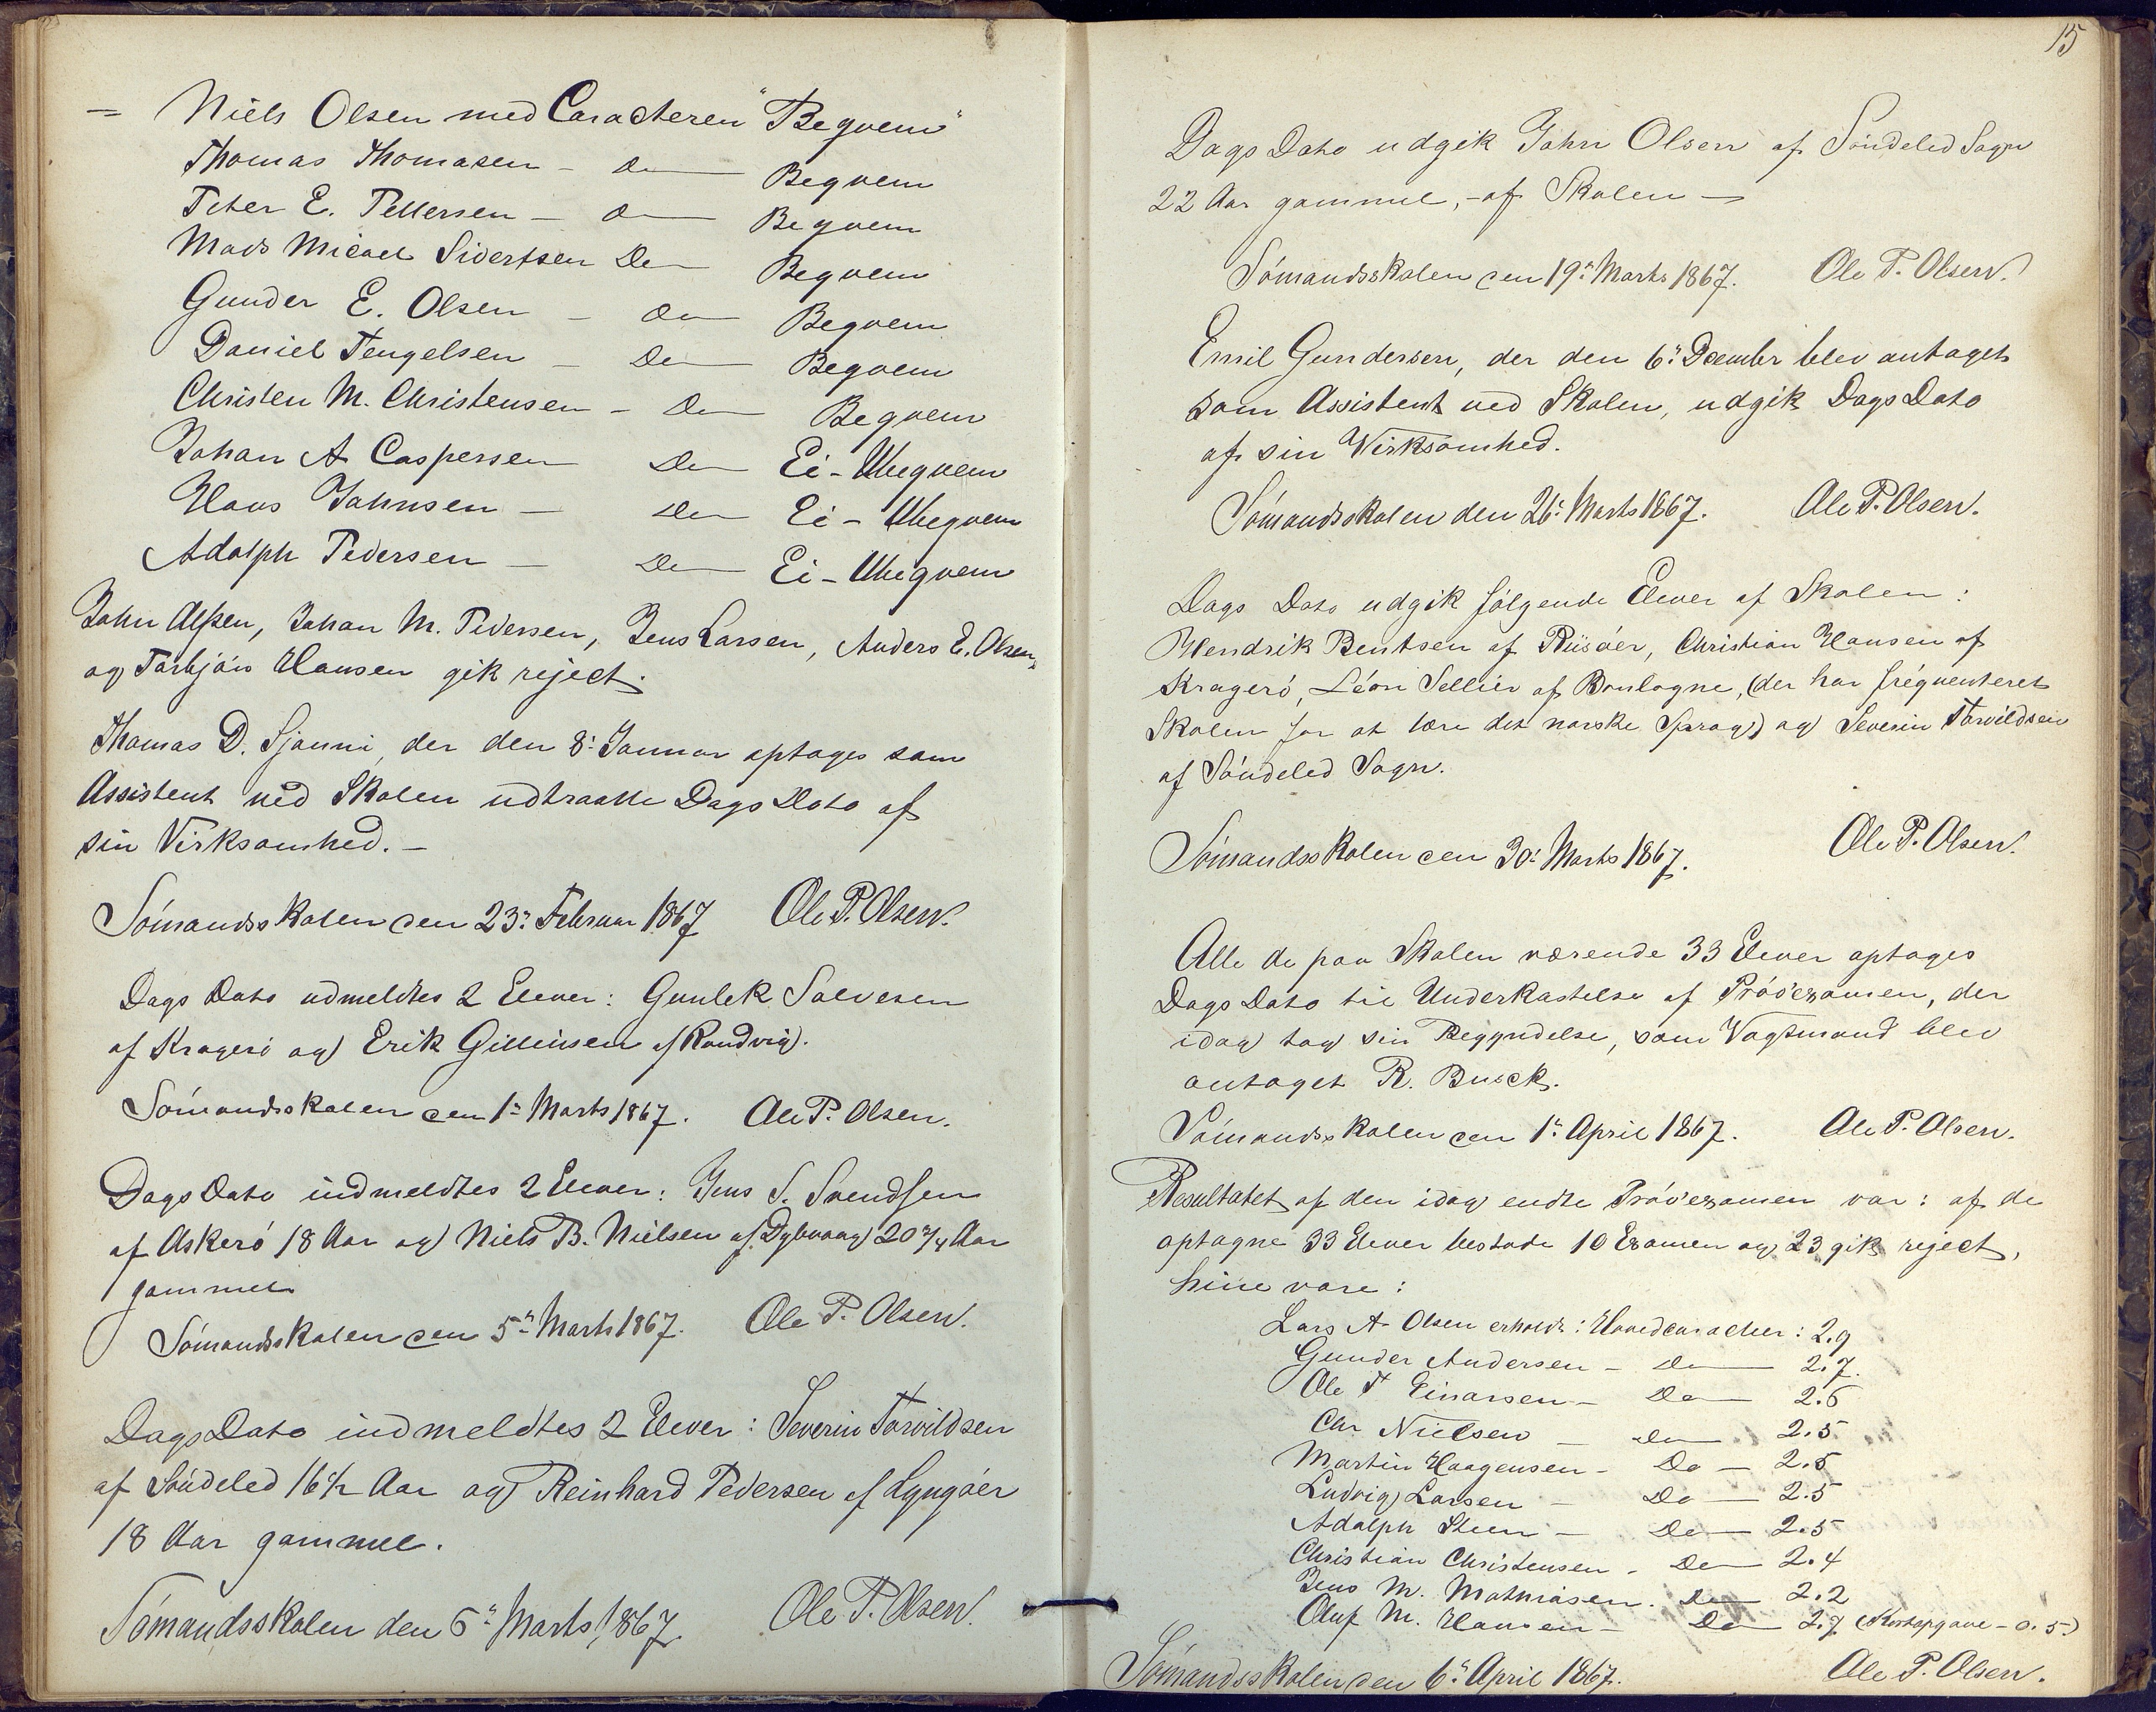 = Niels Olsen med Caracteren "Beqvem"
Thomas Thomasen - Do - Beqvem
Peter E. Pettersen - Do - Beqvem
Mads Micael Sivertsen Do Beqvem
Gunder E. Olsen - Do - Beqvem
Daniel Tengelsen - Do - Beqvem
Christen M. Christensen - Do - Beqvem
Johan A Caspersen Do Ei-Ubeqvem
Hans Johnsen - Do Ei-Ubeqvem
Adolph Pedersen - Do Ei-Ubeqvem
John Olsen, Johan M. Pedersen, Jens Larsen, Anders E. Olsen,
og Torbjön Hansen gik reject.
Thomas D. Sjonni, der den 8: Januar optoges som
Assistent ved Skolen udtraatte Dags Dato af
sin Virksomhed. -
Sömandsskolen den 23: Februar 1867 Ole P. Olsen.
Dags Dato udmeldtes 2 Elever: Gunlek Salvesen
af Kragerö og Erik Gillinsen af Randvig.
Sömandsskolen den 1: Marts 1867. Ole P. Olsen.
Dags Dato indmeldtes 2 Elever: Jens S. Svendsen
af Askerö 18 Aar og Niels B. Nielsen af Dybvaag 20 3/4 Aar
gammel
Sömandsskolen den 5: Marts 1867. Ole P. Olsen.
Dags Dato indmeldtes 2 Elever: Severin Torvildsen
af Söndeled 16 1/2 Aar og Reinhard Pedersen af Lyngöer
18 Aar gammel.
Sömandsskolen den 6: Marts 1867. Ole P. Olsen.
15
Dags Dato udgik John Olsen af Söndeled Sogn
22 Aar gammel, - af Skolen -
Sömandsskolen den 19: Marts 1867. Ole P. Olsen.
Emil Gundersen, der den 6: December blev antaget
som Assistent ved Skolen, udgik Dags Dato
af sin Virksomhed.
Sömandsskolen den 26: Marts 1867. Ole P. Olsen.
Dags Dato udgik fölgende Elever af Skolen:
Hendrik Bentsen af Riisöer, Christian Hansen af
Kragerö, Léon Sellier af Boulogne, (der har fréquenteret
Skolen for at lære det norske Sprog) og Severin Torvildsen
af Söndeled Sogn.
Sömandsskolen den 30: Marts 1867. Ole P. Olsen.
Alle de paa Skolen værende 33 Elever optoges
Dags Dato til Underkastelse af Pröveexamen, der
idag tog sin Begyndelse, som Vagtmand blev
antaget R. Busck.
Sömandsskolen den 1: April 1867. Ole P. Olsen.
Resultatet af den idag endte Pröveexamen var: af de
optagne 33 Elever bestode 10 Examen og 23 gik reject,
hine vare:
Lars A. Olsen erholdt: Hovedcaracteer: 2.9
Gunder Andersen - Do - 2.7.
Ole T Einarsen - Do - 2.6
Chr Nielsen - Do - 2.5
Martin Haagensen - Do - 2.5
Ludvig Larsen - Do - 2.5
Adolph Steen - Do - 2.5
Christian Christensen - Do - 2.4
Jens M. Mathiasen. Do - 2.2
Oluf M. Hansen - Do 2.7. (Kortopgave - 0.5)
Sömandsskolen den 6: April 1867. Ole P. Olsen.